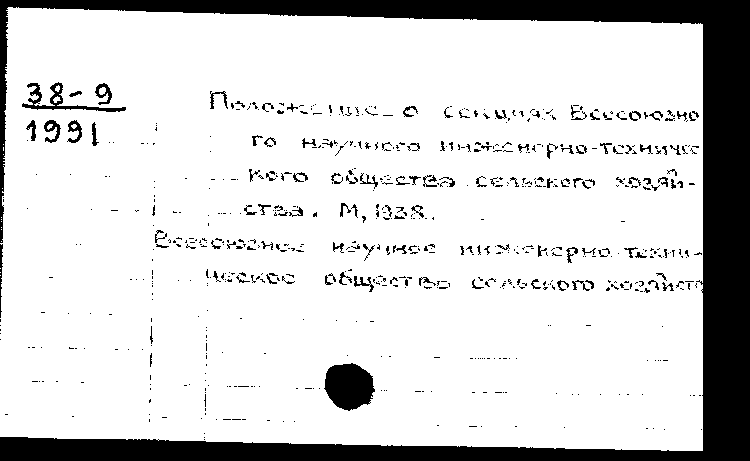 38-9
1991
Положение о секциях Всесоюзно
го научного инженерно-техничес
кого общества сельского хозяй-
ства. М, 1938.
Всесоюзное научное инженерно-техни-
ческое общество сельского хозяйств